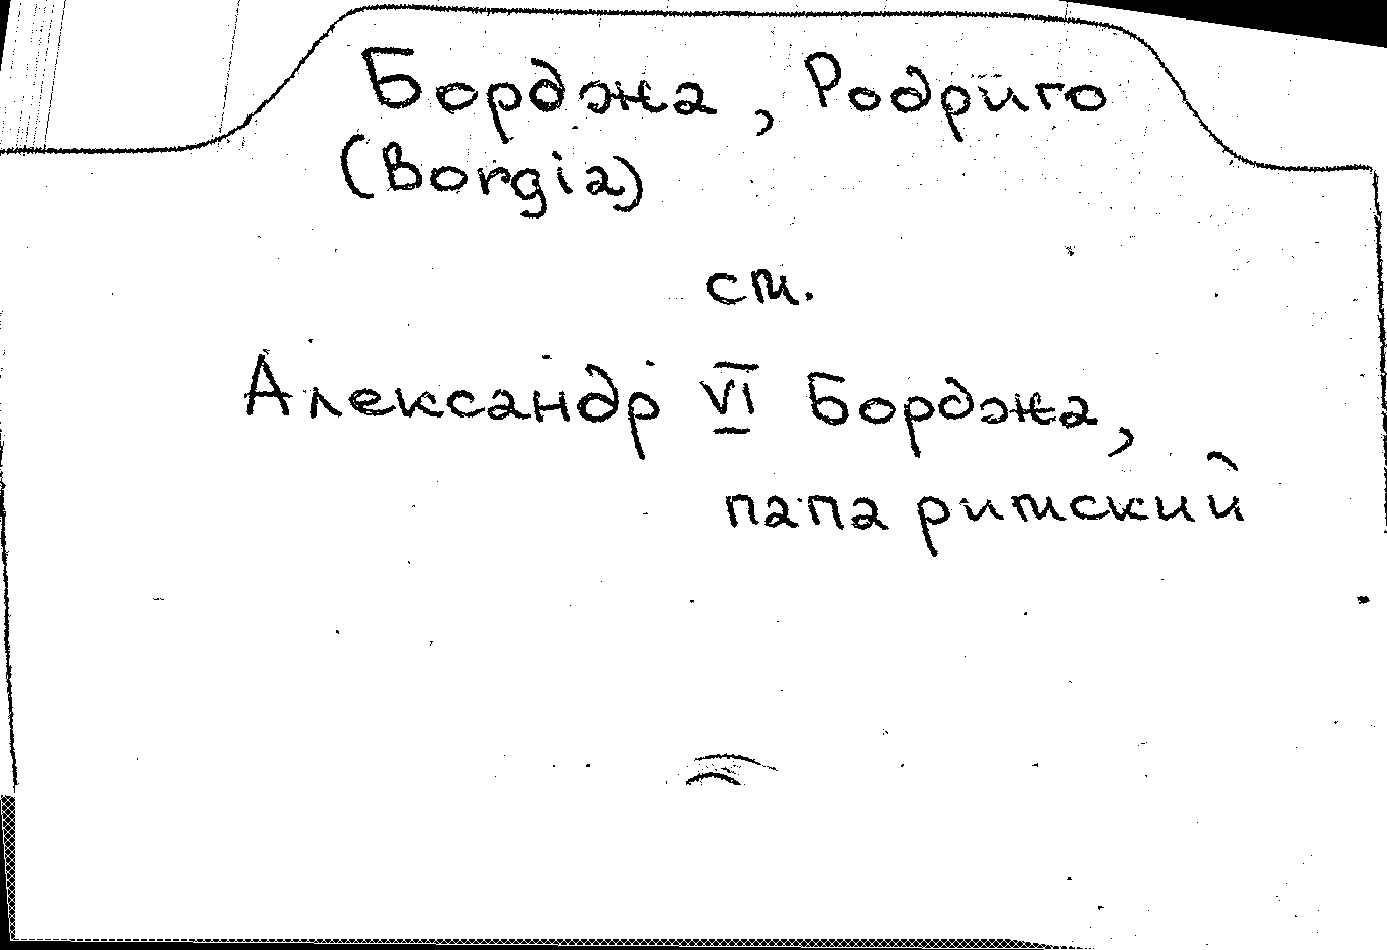 Борджа, Родриго
(Borgia)
см.
Александр VI Борджа,
папа римский